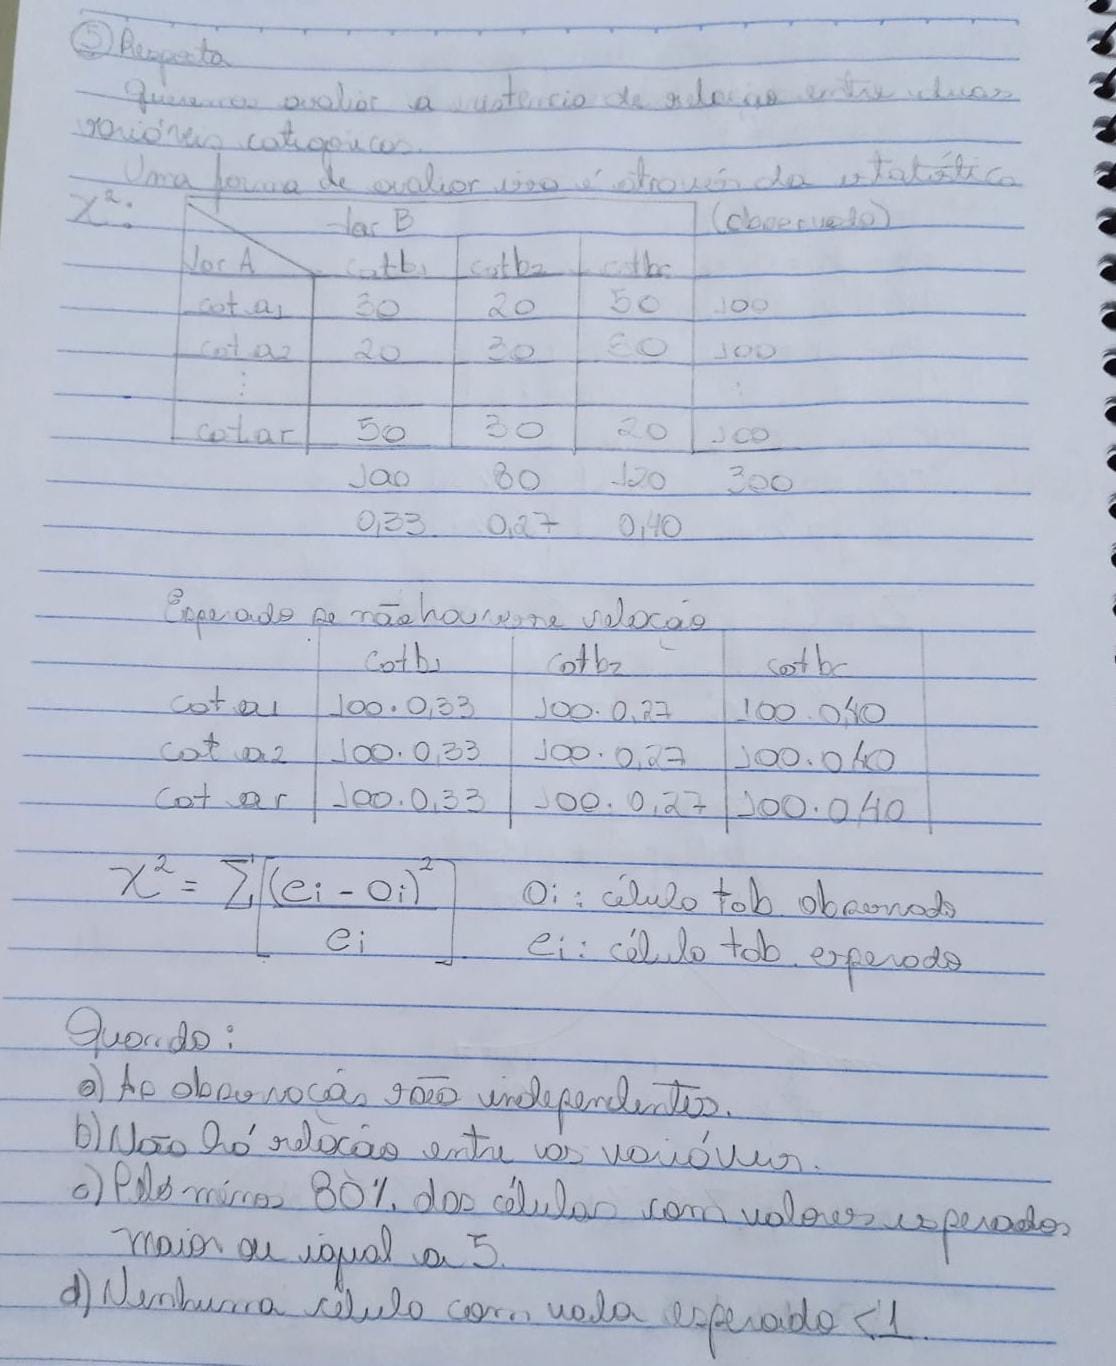 5 Resposta
Queremos avaliar a existencia de relação entre duas
variáveis categoricas.
Uma forma de avaliar isso é através da estatística
X²:
Var B (observado)
Var A catb₁ catb₂ catbc
cat a₁ 30 20 50 100
cat a₂ 20 30 50 100
⋮ ⋮
cat ar 50 30 20 100
100 80 120 300
0,33 0,27 0,40
Esperado se não houvesse relação
catb₁ catb₂ catbc
cat a₁ 100.0,33 100.0,27 100.0,40
cat a2 100.0,33 100.0,27 100.0,40
cat ar 100.0,33 100.0,27 100.0,40
X² = Σ[(ei - oi)²/ei] oi: célula tab observado
ei: célula tab. esperado
Quando:
a) As observação são independentes.
b) Não há relação entre as variáveis.
c) Pelo minos 80% das células com valores esperados
maior ou igual a 5.
d) Nenhuma célula com vala esperado < 1.